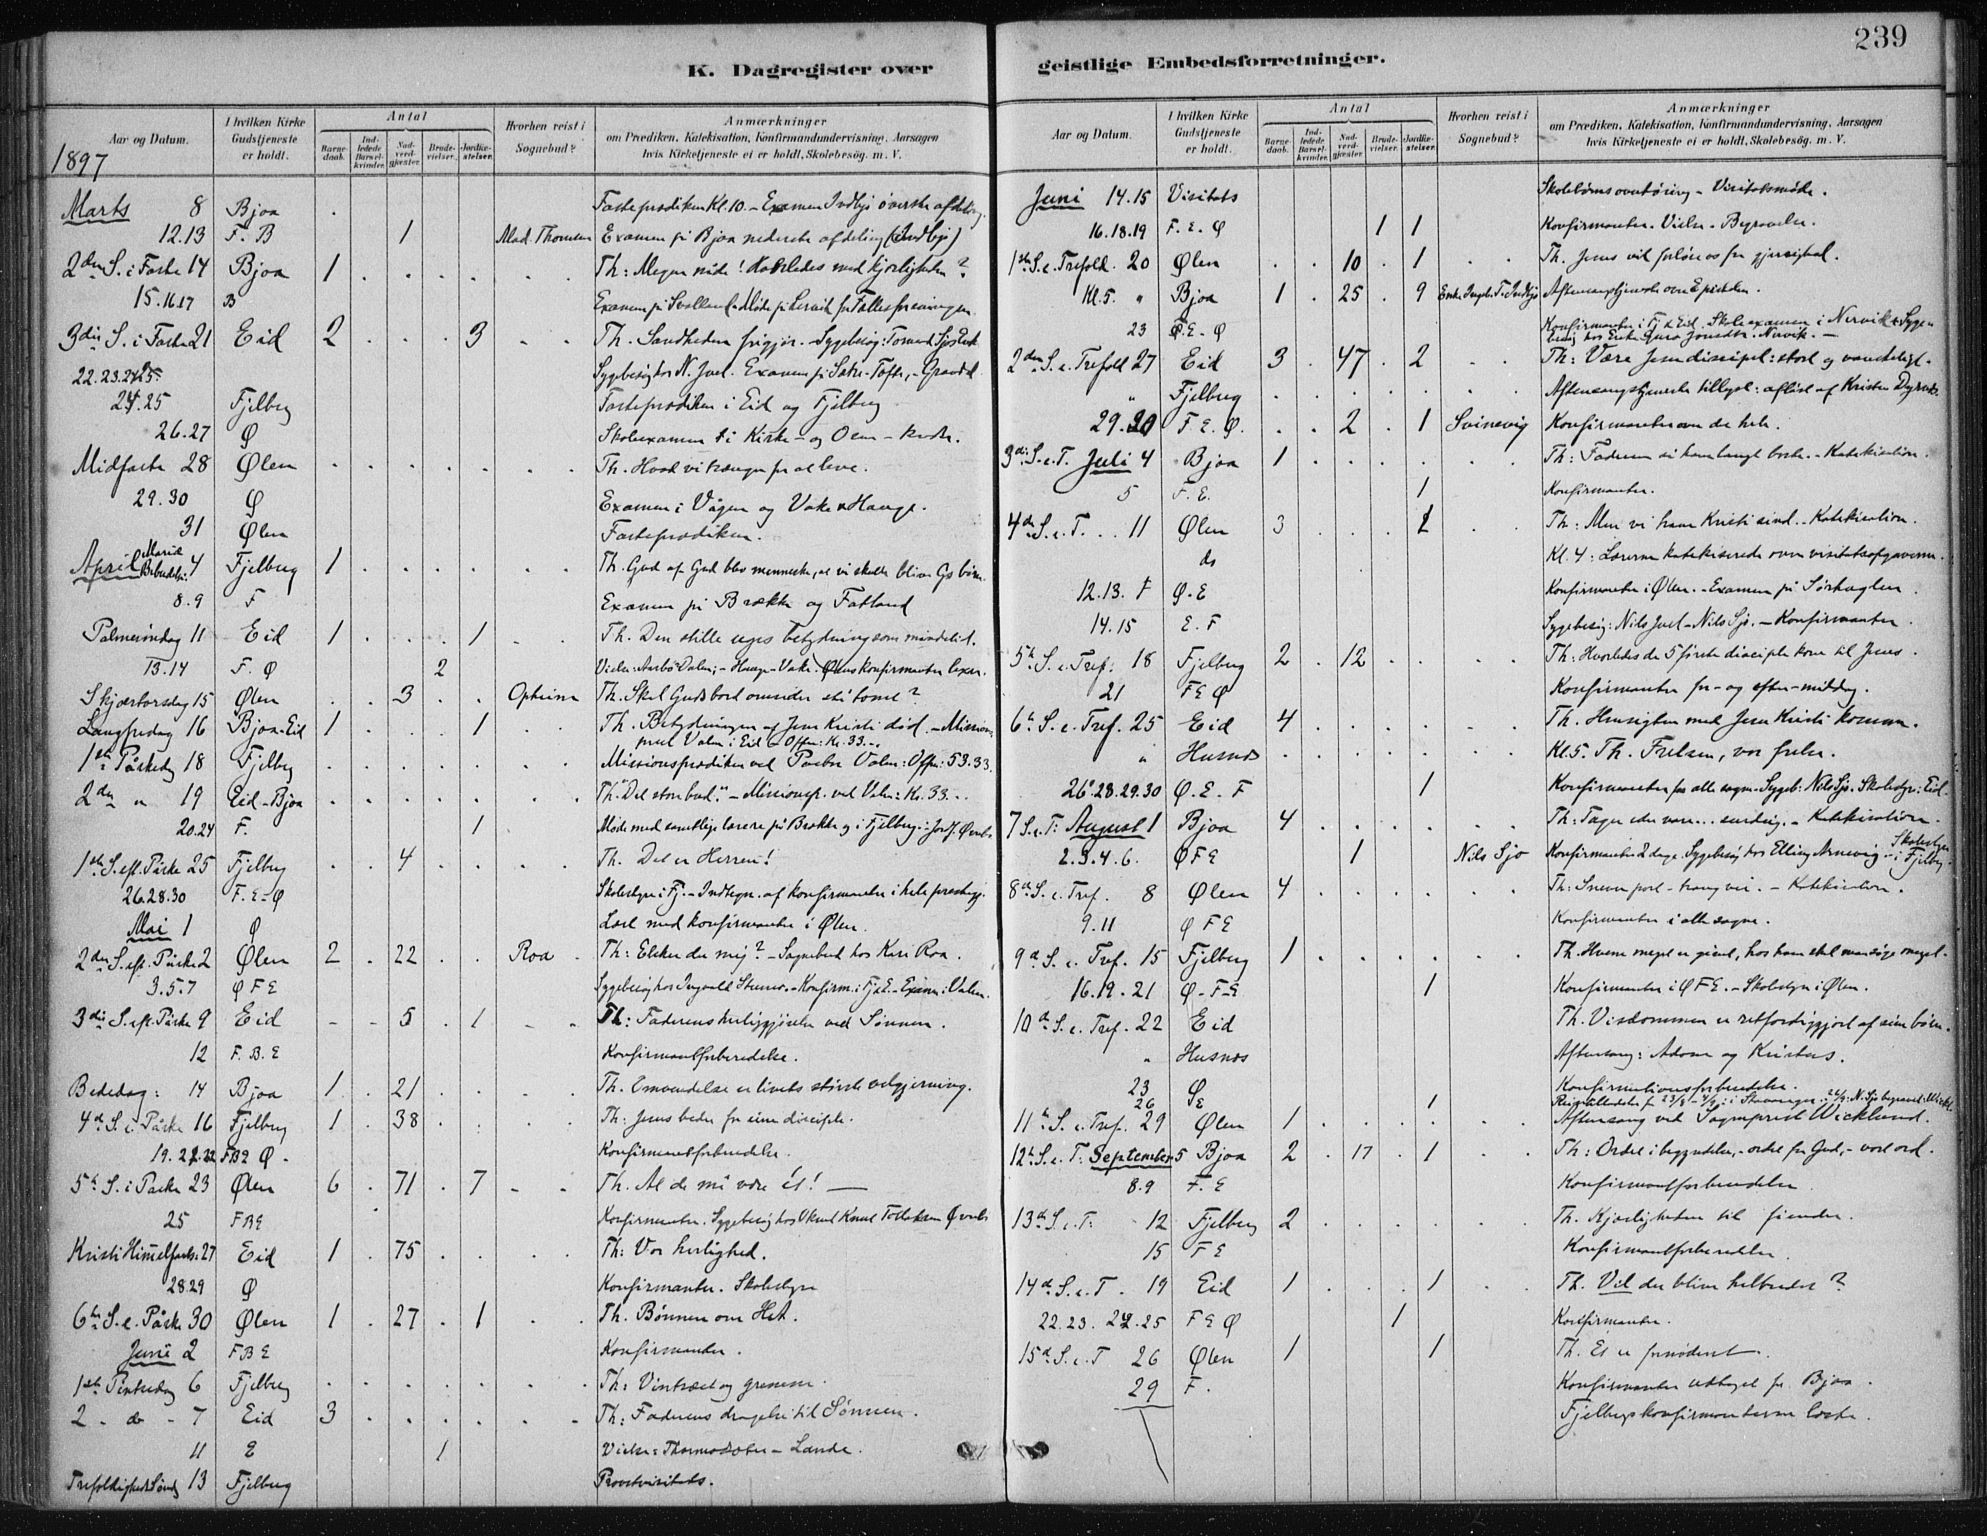 239
K. Dagregister over geistlige Embedsforretninger.
Aar og Datum. I hvilken Kirke Gudstjeneste er holdt. Antal Barnedaab. Indledede Barselkvinder. Nadverdgjæster Brudevielser. Jordfæstelser. Hvorhen reist i Sognebud? Anmærkninger om Prædiken, Katekisation, Konfirmandundervisning, Aarsagen hvis Kirketjeneste ei er holdt, Skolebesøg. m. V.
1897
Marts 8 Bjoa Fasteprædiken Kl. 10. - Examen Indbjo øverste afdeling.
12.13 F. B 1 Mad. Thomsen Examen på Bjoa nederste afdeling (Indbjo)
2den S. i Faste 14 Bjoa 1 Th: Megen nåde! Hvorledes med kjærligheden?
15.16.17 B Examen på
3die S. i Faste 21 Eid 2 3 Th. Sandheden frigjør. - Sygebesøg:
22.23.24.25 Sygebesøg hos N. Juel. Examen på
24.25 Fjelberg Fasteprædiken i Eid og Fjelberg
26.27 Ø Skoleexamen i Kirke - og Ølen - kreds.
Midfaste 28 Ølen Th. Hvad vi trænger for at leve.
29.30 Ø Examen i Vågen og Vake & Hauge.
31 Ølen Fasteprædiken.
April Mariæ Bebudelse 4 Fjelberg 1 Th. Gud af Gud blev menneske, at vi skulde blive Gs børn.
8.9 F Examen på Brække og Fatland
Palmesøndag 11 Eid 1 1 Th. Den stille uges betydning som mindetid.
13.14 F. Ø 2 Vielse: - Hauge - Vake. Ølens konfirmanter
Skjærtorsdag 15 Ølen 3 Opheim Th. Skal Guds bord omsider stå tomt?
Langfredag 16 Bjoa-Eid 1 1 Th. Betydningen af Jesu Kristi død. - Missions
præd. Valen i Eid - Offer: Kr. 33.-.
1ste Påskedag 18 Fjelberg Missionsprædiken ved Pastor Valen: Offer: 53.33.
2den " 19 Eid - Bjoa Th. "Det store bud." - Missionsp. ved Valen: Kr. 33.-.
20.24 F. 1 Møde med samtlige lærere på Brække og i Fjelberg:
1ste S. eft. Påske 25 Fjelberg 4 Th. Det er Herren!
26.28.30 F. E - Ø Skolestyre i Fj. - Indtegn. af konfirmanter i hele prestegj.
Mai 1 Ø Læst med konfirmanter i Ølen.
2den S. eft. Påske 2 Ølen 2 22 Roa Th: Elsker du mig? - Sognebud hos Kari Roa.
3.5.7 Ø F E Sygebesøg hos Ingvald - Konfirm. i Fj & E. - Examen i Valen.
3die S. eft. Påske 9 Eid 5 1 Th: Faderens herliggjørelse ved Sønnen.
12 F. B. E Konfirmantforberedelse.
Bededag: 14 Bjoa 1 21 Th. Omvendelse er livets største velgjerning.
4de S. e. Påske 16 Fjelberg 1 38 Th: Jesus beder for sine disciple.
19.21.22 F B E Ø. Konfirmantforberedelse.
5te S. e. Påske 23 Ølen 6 71 7 Th. At de må være ét!
25 F B E Konfirmanter. Sygebesøg hos Knut Tollaksen Ø
Kristi Himmelfarts: 27 Eid 1 75 Th: Vor herlighed.
28.29 Ø Konfirmanter. Skolestyre
6te S. e. Påske 30 Ølen 1 27 1 Th. Bønnen om
Juni 2 F B E Konfirmanter.
1ste Pintsedag 6 Fjelberg Th: Vintræet og grenene.
2 - do - 7 Eid 3 Th: Faderens dragelse til Sønnen.
11 E 1 Vielse: - Lande.
Trefoldigheds Sønd. 13 Fjelberg Provstevisitats.
Aar og Datum. I hvilken Kirke Gudstjeneste er holdt. Antal Barnedaab. Indledede Barselkvinder. Nadverdgjæster Brudevielser. Jordfæstelser. Hvorhen reist i Sognebud? Anmærkninger om Prædiken, Katekisation, Konfirmandundervisning, Aarsagen hvis Kirketjeneste ei er holdt, Skolebesøg. m. V.
Juni 14.15 Visitats Skolebørns overhøring - Visitatsmøde.
16.18.19 F. E. Ø 1 1 Konfirmanter. Vielse. Begravelse.
1ste S. e. Trefold. 20 Ølen 10 1 Th. Jesus vil forløse os fra gjerrighed.
Kl. 5. " Bjoa 1 25 9 Aftensangstjeneste over Epistelen.
23 F. E - Ø Konfirmanter i Fj & Eid. Skoleexamen i Nervik & Syge-
besøg hos Enke Jonsdtr. Nervik. -
2den S. e. Trefold 27 Eid 3 47 2 Th: Være Jesu discipel: stort og vanskeligt.
" Fjelberg Aftensangstjeneste tillyst: aflöst af Kristen
29.30 F E. Ø. 2 1 Svinevig Konfirmanter over det hele.
3die S. e. T. Juli 4 Bjoa 1 Th: Faderen så ham langt borte. - Katekisation.
5 F. E. 1 Konfirmanter.
4de S. e. T. 11 Ølen 3 1 Th: Men vi have Kristi sind. - Katekisation.
do Kl. 4: Lærerne katekiserede over visitatsopgaverne.
12.13. F Ø. E Konfirmanter i Ølen. - Examen på Sørhauglen.
14.15 E. F Sygebesøg: Nils Juel - Nils Sjo. - Konfirmanter.
5te S. e. Tref. 18 Fjelberg 2 12 Th: Hvorledes de 5 første disciple kom til Jesus.
21 F E Ø Konfirmanter for- og efter-middag.
6te S. e. Tref. 25 Eid 4 Th. Hensigten med Jesu Kristi komme.
" Husnes Kl. 5. Th. Frelsen, vor frelse.
26.28.29.30 Ø. E. F 1 Konfirmanter fra alle sogne. Sygeb: Nils Sjo. Skolestyr: Eid.
7 S. e. T: August 1 Bjoa 4 Th: Tager eder vare... surdeig. - Katekisation.
2.3.4.6. Ø F E 1 Nils Sjo Konfirmanter 2 dage. Sygebesøg hos Elling Arnevig. - Skolestyre i Fjelberg.
8de S. e. Tref. 8 Ølen 4 Th: Snever port - trang vei. - Katekisation.
9.11 Ø F E Konfirmanter i alle sogne.
9de S. e. Tref. 15 Fjelberg 1 Th. Hvem meget er givet, hos ham skal man søge meget.
16.19.21 Ø - F - E 1 Konfirmanter i Ø F E. - Skolestyre i Ølen.
10de S. e. Tref. 22 Eid Th. Visdommen er retfærdiggjort af sine børn.
" Husnes Aftensang: Adam og Kristus.
23 Ø Konfirmationsforberedelse.
26 E 1 Reise
11te S. e. Tref. 29 Ølen 1 Aftensang ved Sogneprest Wicklund.
12te S. e. T: September 5 Bjoa 2 17 1 Th: Ordet i begyndelsen, - ordet fra Gud, - vort ord.
8.9 F. E Konfirmantforberedelse
13de S. e. T: 12 Fjelberg 2 Th. Kjærligheden til fiender.
15 F E Konfirmantforberedelse.
14de S. e. T. 19 Eid 1 1 Th. Vil du blive helbredet?
22.23.24.25 F E Ø 1 Konfirmanter.
15de S. e. T 26 Ølen 1 1 Th. Et er fornødent.
29 F. Konfirmanter udtaget fra Bjoa.
Fjelbergs konfirmanterne læste.